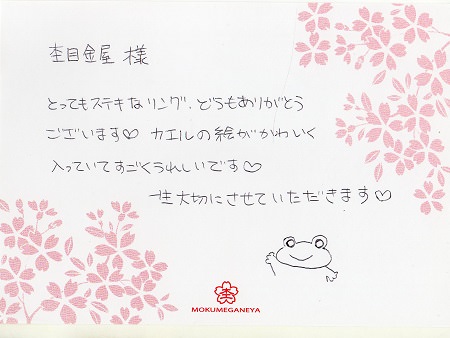 杢目金屋 様
とってもステキなリング、どうもありがとう
ございます♡ カエルの絵がかわいく
入っていてすごくうれしいです♡
一生大切にさせていただきます♡
MOKUMEGANEYA